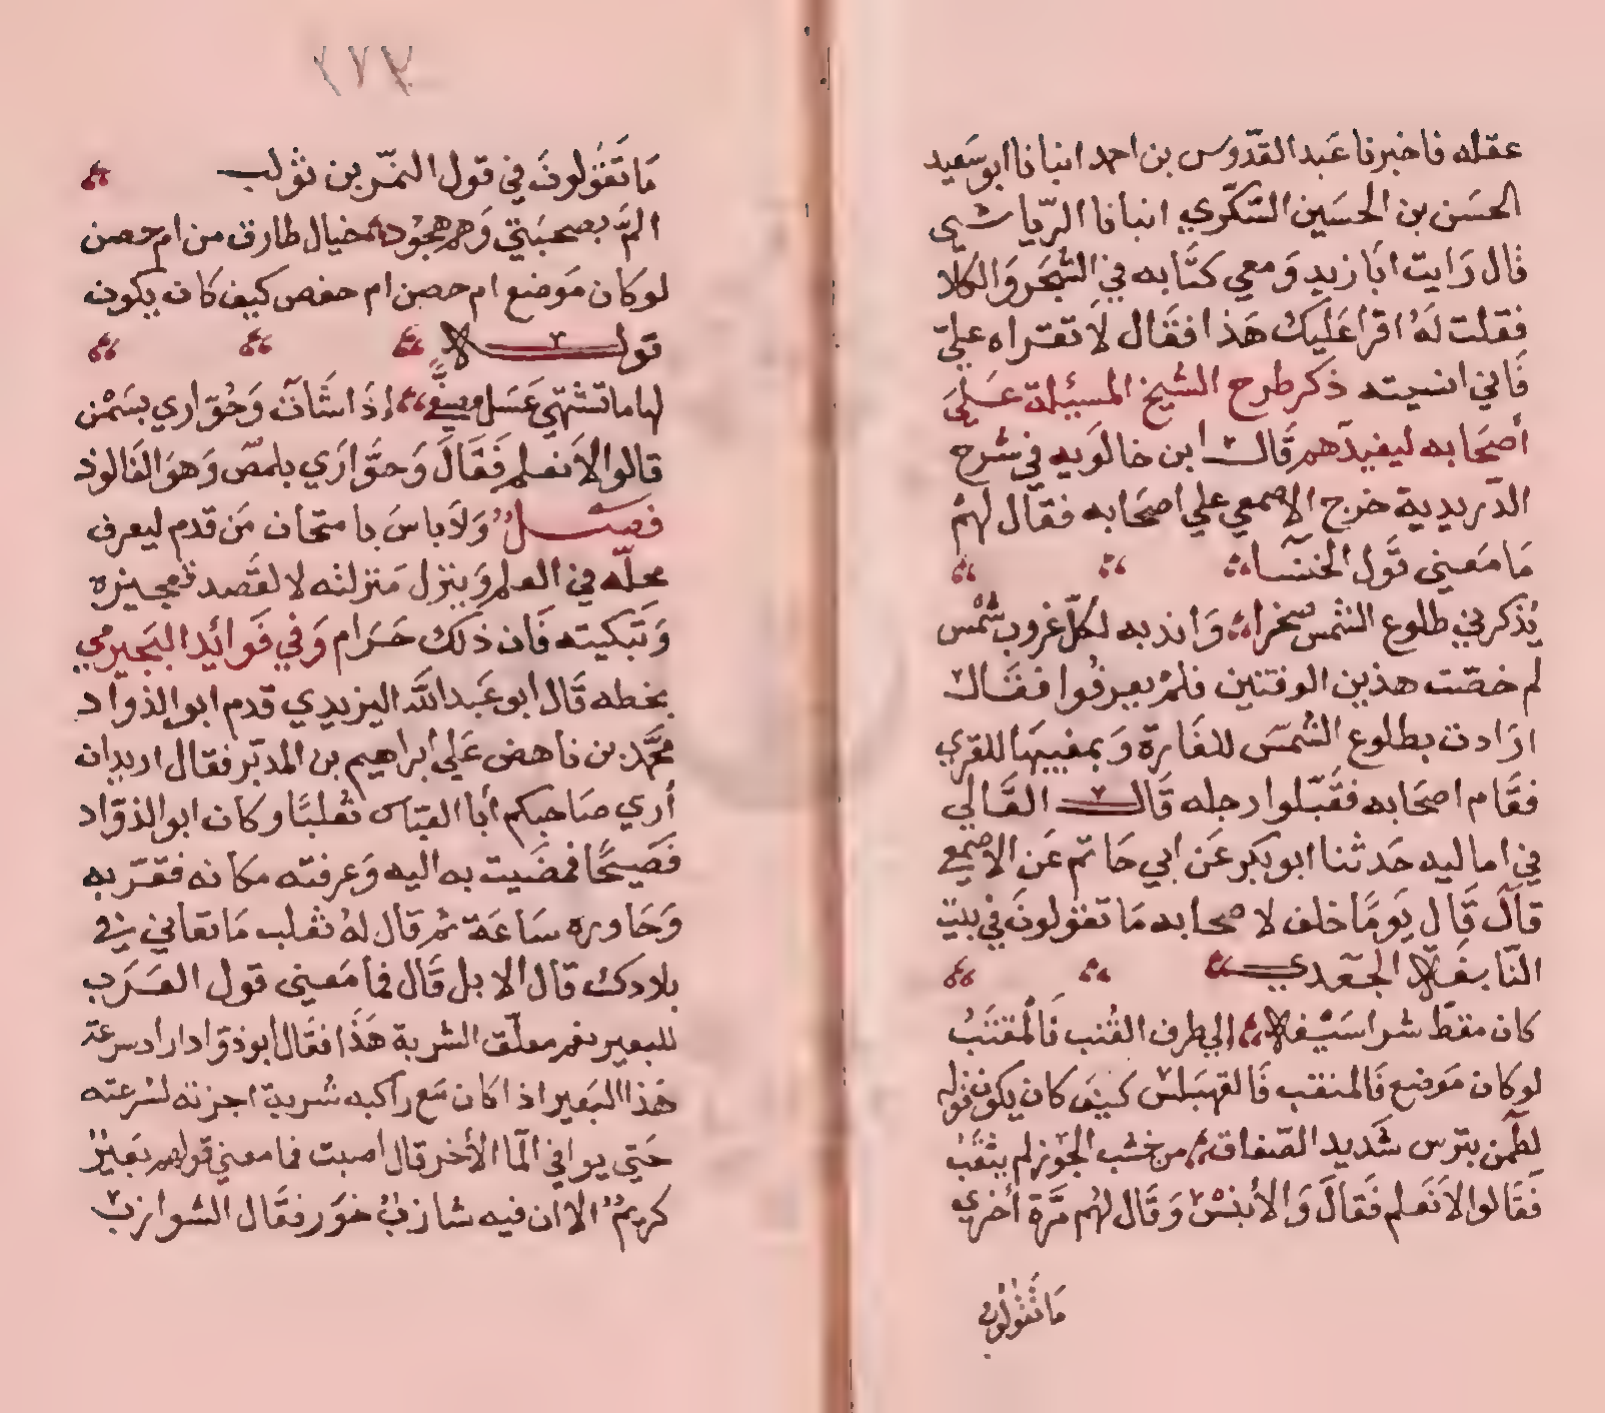 عقله فاخبرنا عَبد القدّوس بن احمد انبانا ابو سَعيد
الحسَن بن الحسَين السّكّري انبانا الرّياشي
قال رَايت ابَا زيد وَمعي كتَابه في الشجَر وَالكلا
فقلت لَهُ اقرا عَليك هَذا فقَال لَا تقراه عليّ
فَاني انسيته ذكر طرح الشيخ المسيئلة عَلَى
أصحَابه ليفيدَهم قَال ابن خالوَيه في شرح
الدّريدية خرج الاصمعي علي اصحَابه فقَال لهمْ
مَا مَعنى قَول الخنسَا
يُذكرني طلوع الشمس صخرا وَاندبه لكلّ غروب شَمْس
لم خصّت هذين الوقتين فلمْ يعرفُوا فقَال
ارَادت بطلوع الشمسَ للغَارة وَبمغيبهَا للقري
فقَام اصحَابه فقَبّلوا رجله قَال القَالي
في اماليه حَدثنا ابو بكر عَن ابي حَاتم عَن الاصمعي
قالَ قَال يَومًا خلف لاصحابه مَا تقولونَ في بيت
النّابغَة الجَعدي
كان مقطّ شراسَيْفه الي طرف القُنب فَالمَنقَبُ
لو كان مَوضع فَالمنقب فَالقهبَلس كيفَ كان يكون قوله
لطمن بترس شَديد الصّفاق من خشب الجَوز لم يثقَبُ
فقَالوا لاَ نَعلم فَقالَ وَالأبنسْ وَقَال لهُم مَرّة أخري
مَا تَقولُون
٢٧٧
مَا تَقولونَ في قول النمّر بن تولب
المّ بصحبَتي وَهم هجُود خيال طارق من ام حصن
لو كان مَوضع ام حصن ام حفص كيف كانَ يكون
قوله
لها ما تشتهي عَسَل مصفًّى اِذَا شَآت وَحُوّاري بسَمْن
قالوا لاَ نعلم فَقَالَ وَحوَّارَي بلمصّ وَهوَ الفَالوذ
فصَل وَلاَ باسَ بامتحان مَن قدم ليعرف
محلّه في العلم وَينزل مَنزلته لا لقَصد تعجيزه
وَتَبكيته فَان ذَلَك حَرَام وَفي فَوائد البَجيرمي
بخطه قَال ابو عَبد اللَّه اليزيدي قدم ابو الذواد
محَّمد بن ناهض عَلي اِبراهيم بن المدبّر فقال اريد ان
أري صَاحبكم أبا العَبّاس ثعلبًا وكان ابو الذوّاد
فَصَيحًا فمضَيت به اليه وَعرفته مكَانه فقرّ به
وَحَاوره سَاعَة ثم قال لهُ ثعلب مَا تعَاني في
بلادك قال الابل قَال فما مَعنى قول العَرَب
للبعير نعم معلّق الشربة هَذَا فقَال ابو ذوّاد اراد سرعَة
هَذا البَعير اذا كَان مَع رَاكبه شُربة اجزته لسُرعته
حَتي يوَافي المَا الأخر قال اصبت فما معني قولهم بَعيْر
كريمُ الا ان فيه شازبُ خوَر فقَال الشوازب